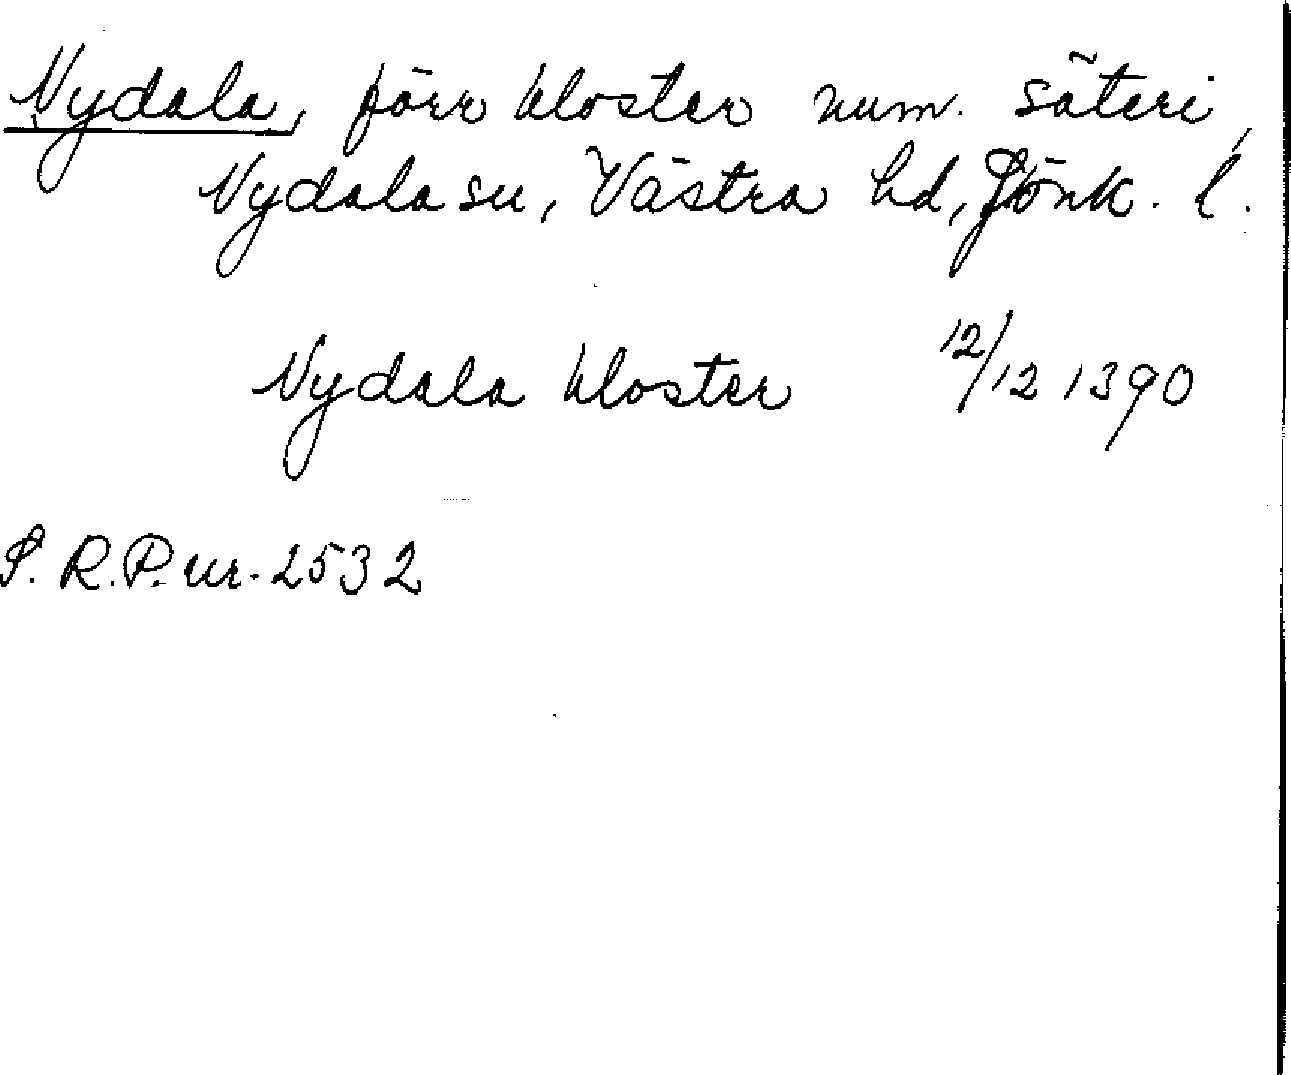 Nydala, förr kloster num. säteri,
Nydala sn, Västra hd, Jönk. l.
Nydala kloster 12/12 1390
S. R. P. nr. 2532